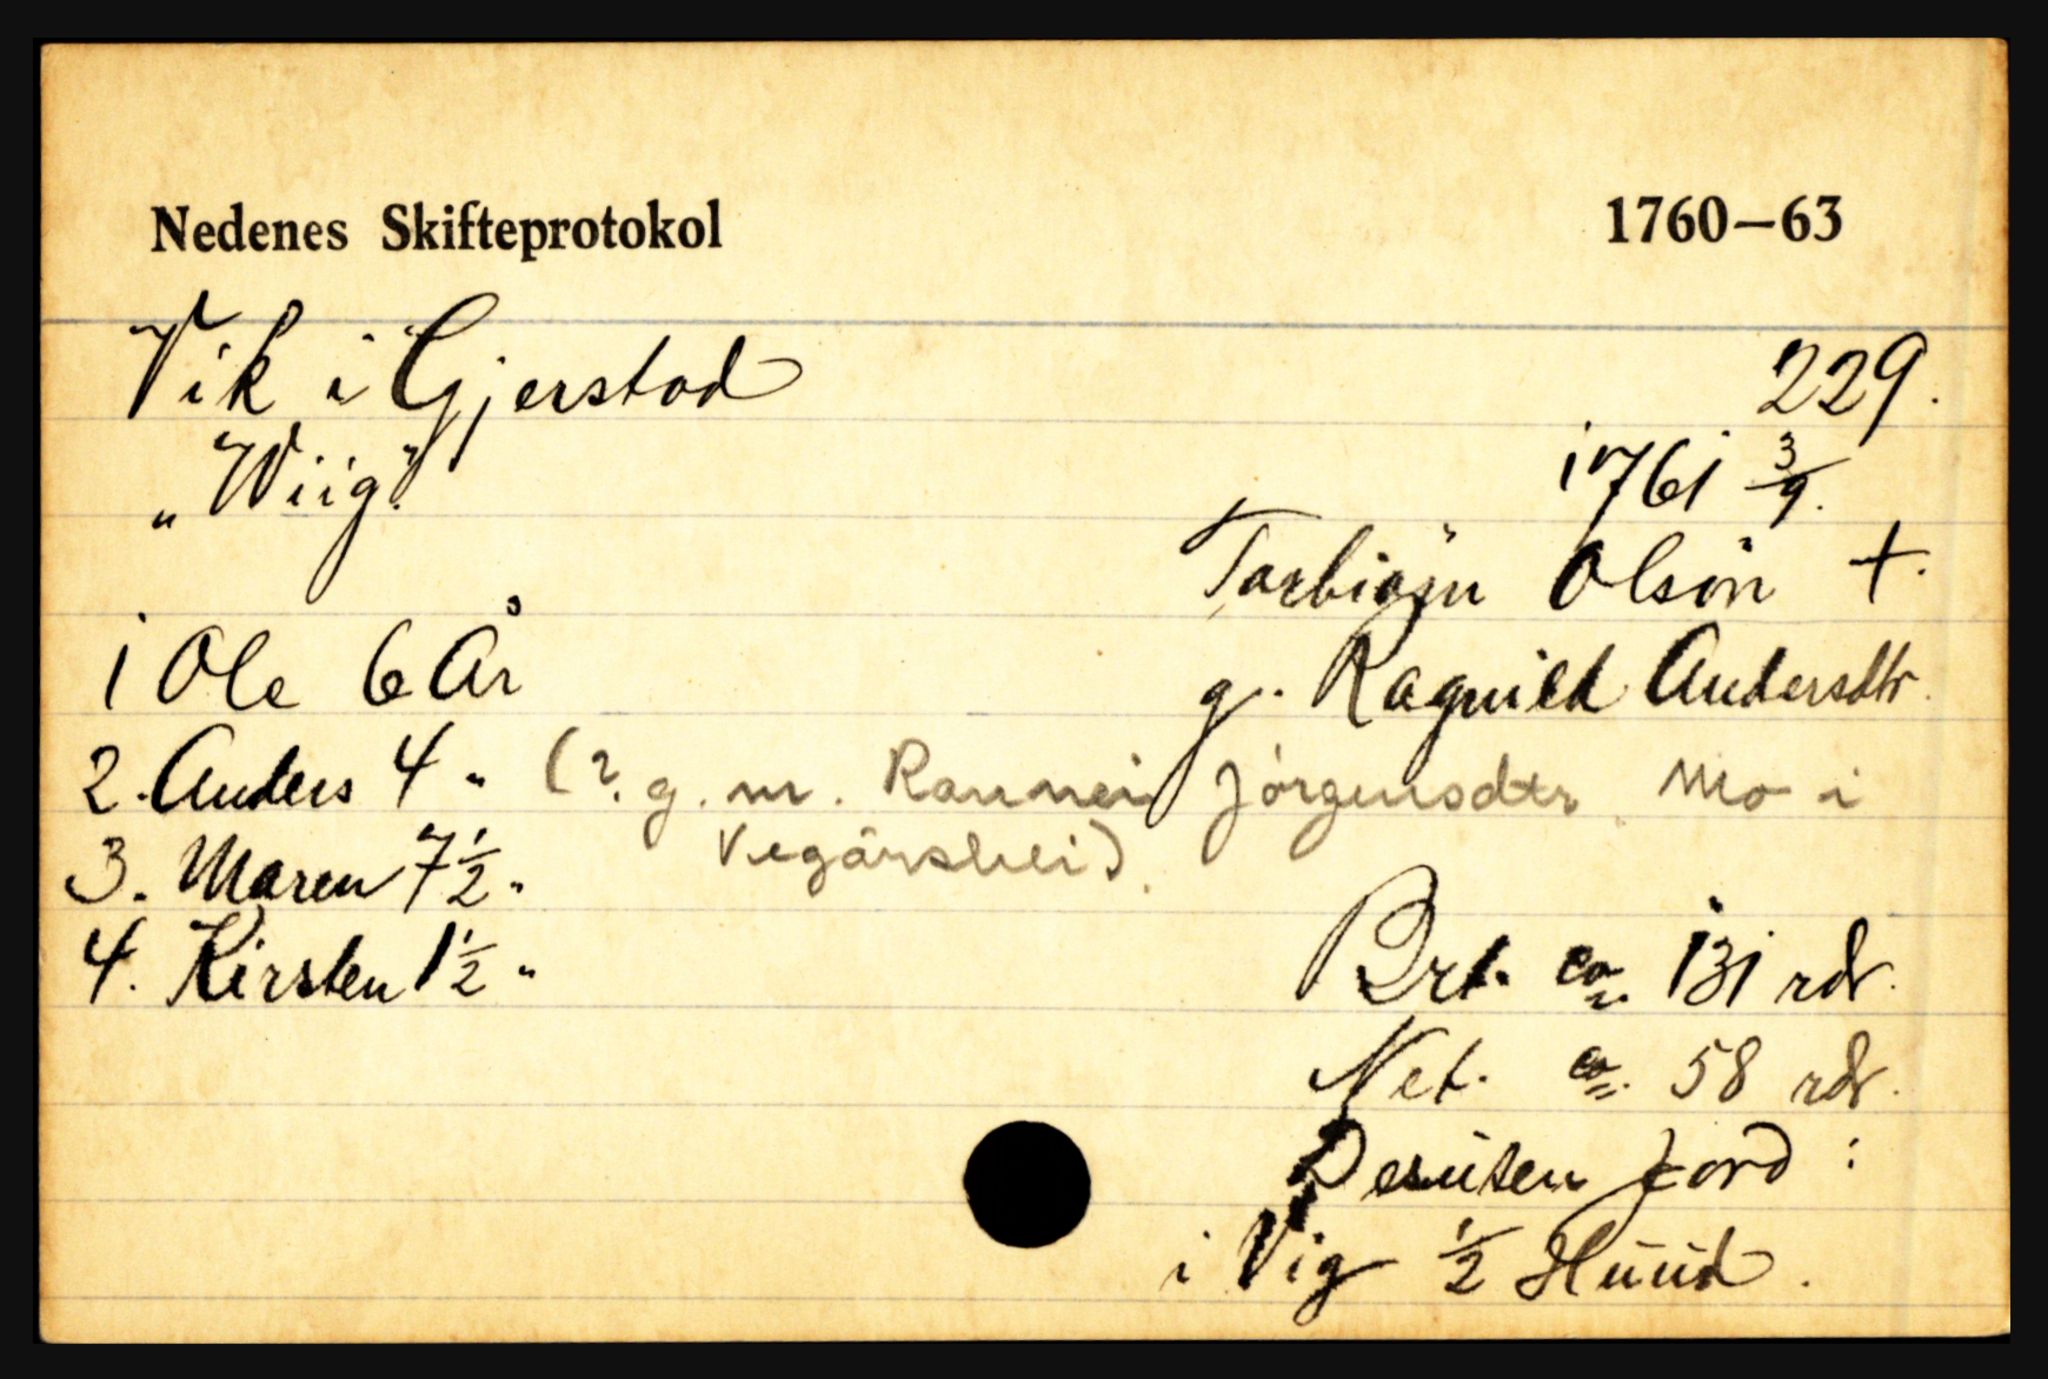 Nedenes Skifteprotokol 1760–63
Vik i Gjerstad 229.
"Wiig". 1761 3/9.
Torbiøjn Olsön +.
1 Ole 6 År g. Ragnild Andersdtr.
2. Anders 4 " (?. g. m. Rannei Jörgensdtr. Mo i
3. Maren 7 1/2 " Vegårshei).
4. Kirsten 1 1/2 " Brt. ca. 131 rdr.
Net. ca. 58 rdr.
Desuten jord :
i Vig 1/2 Huud.